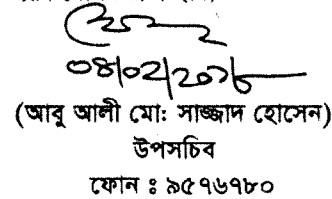 ০৪/০২/২০১৮
(আবু আলী মো: সাজ্জাদ হোসেন)
উপসচিব
ফোন ঃ ৯৫৭৬৭৮০